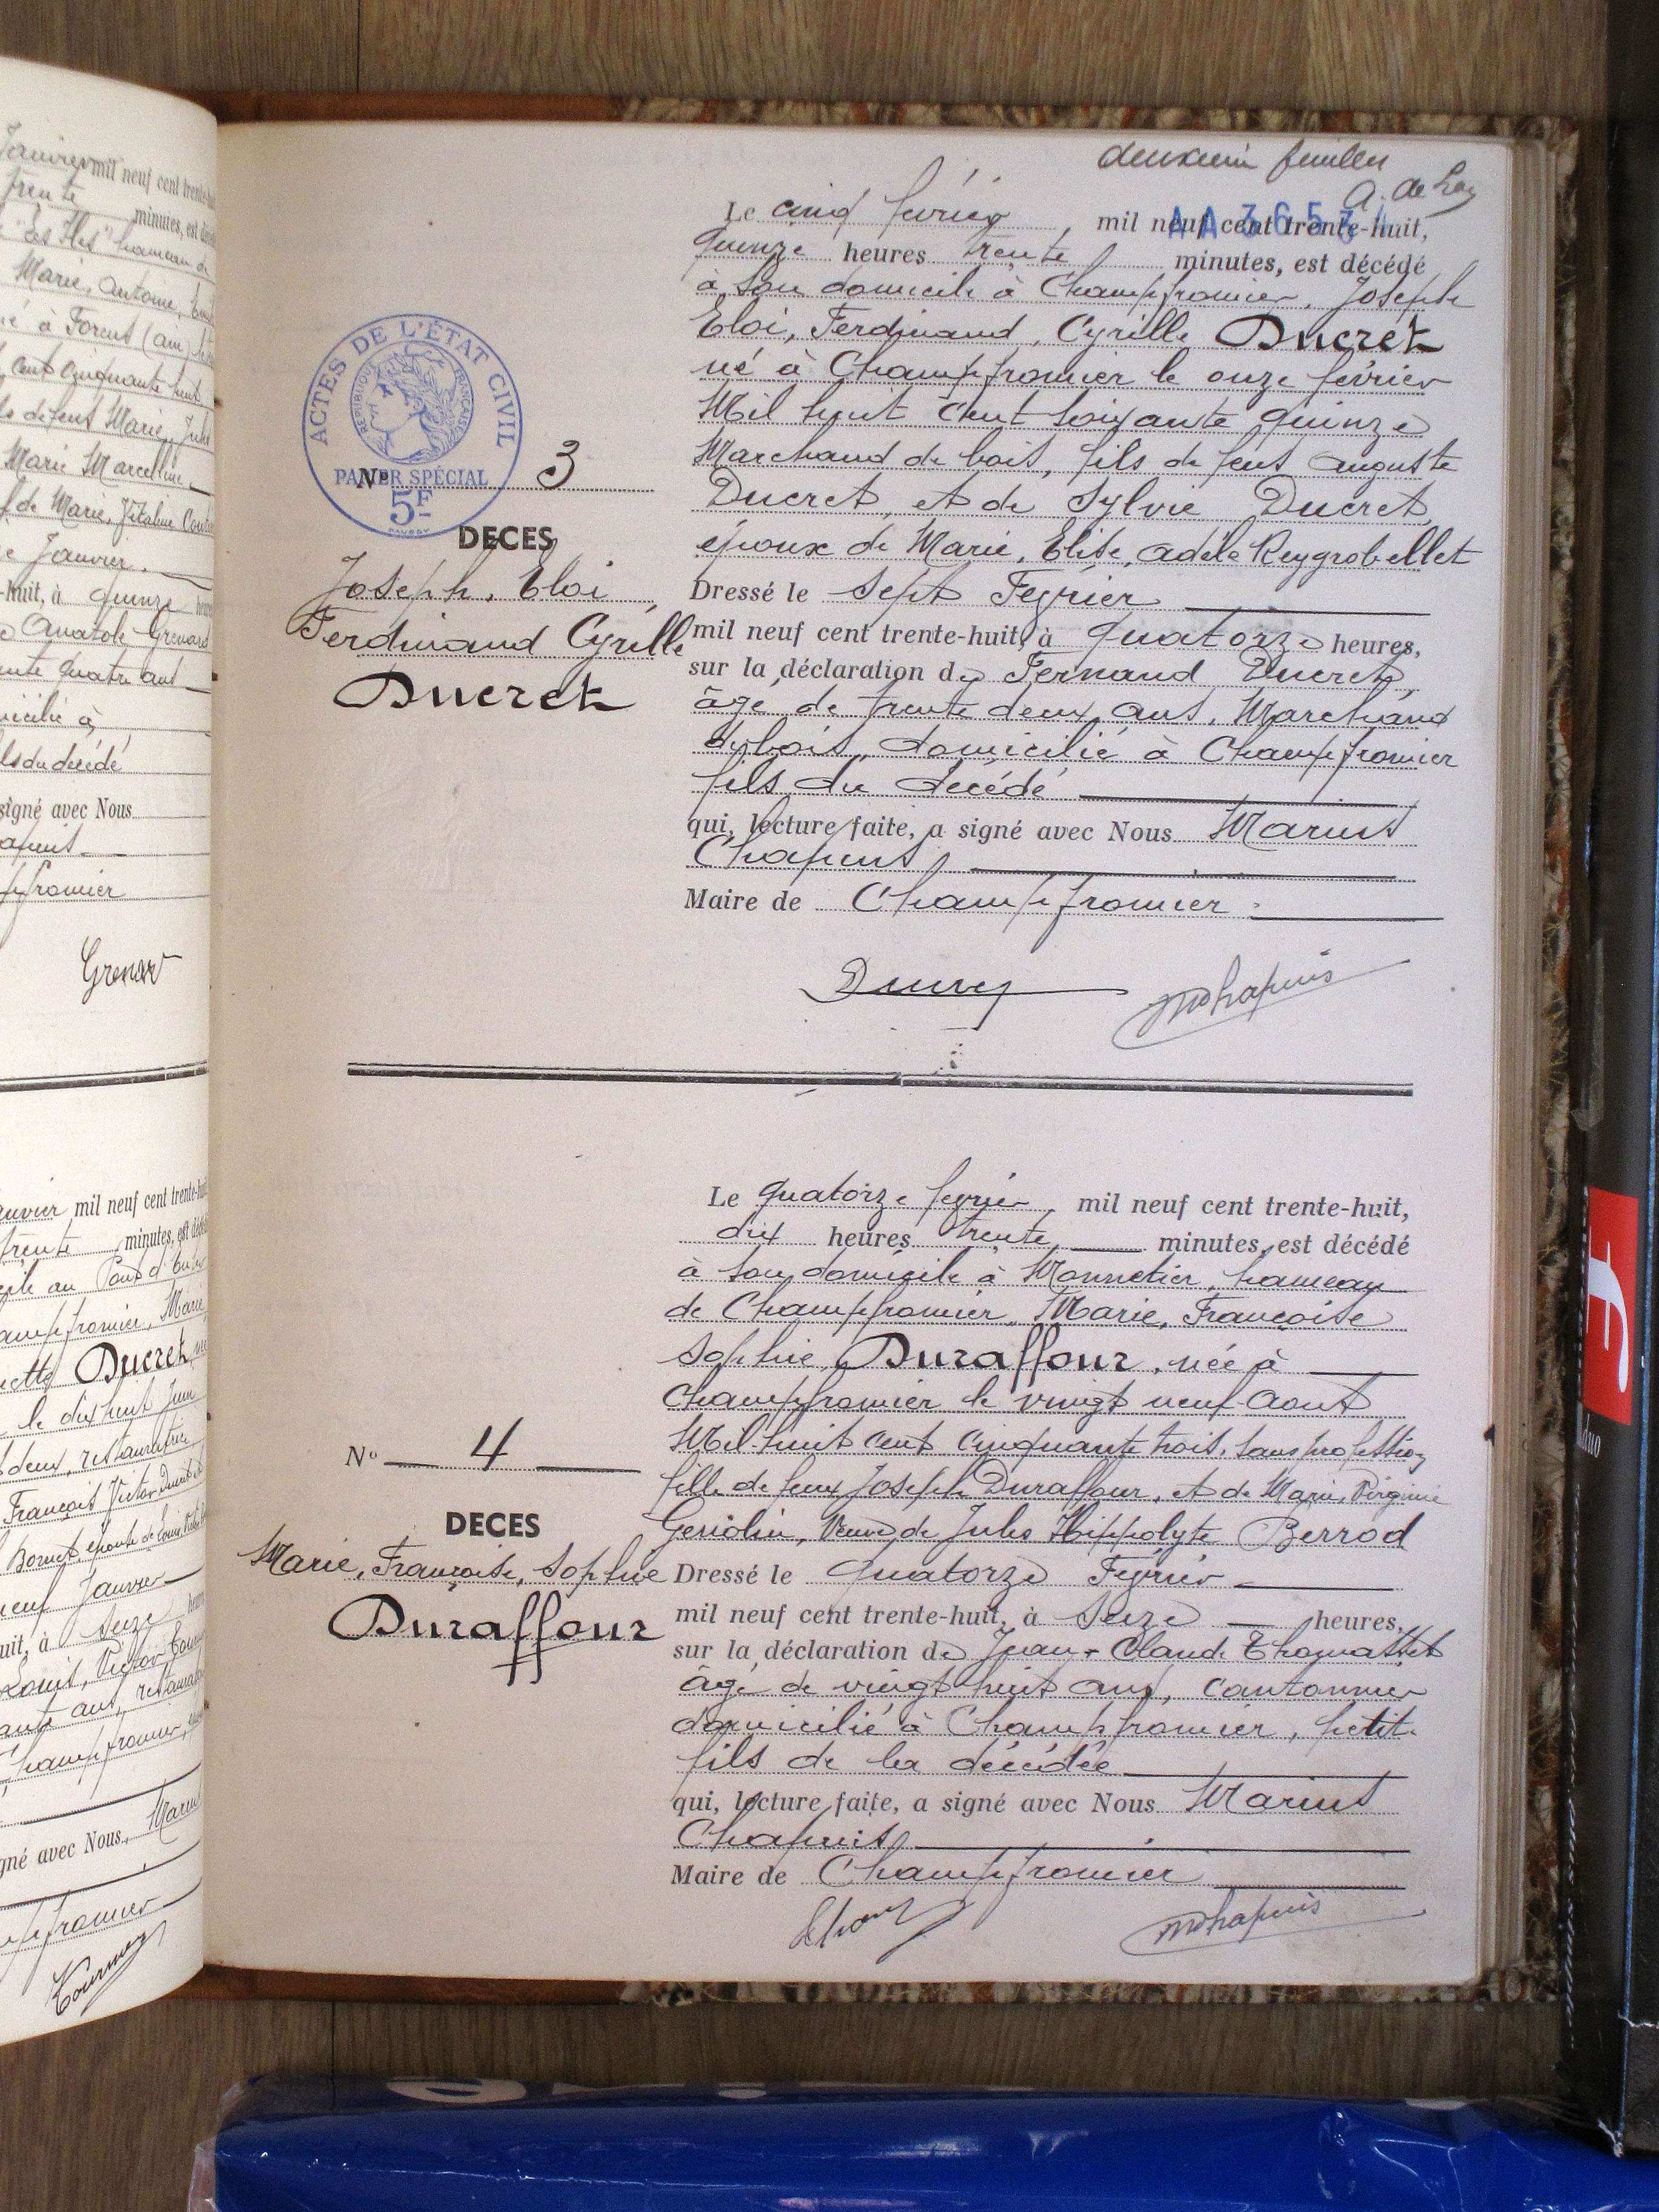 Janvier mil neuf cent trente-hu
trente minutes, est décédé
"Les Iles" hameau de
Marie, Antoine,
né à Forens (ain)
cent cinquante huit
de feus Marie, Jules
Marie Marcelline
de Marie, Vitaline
Janvier
-huit, à quinze heures
Anatole Grenard
quatre ans
domicilié à
ls du décédé
signé avec Nous
apuis
fromier
Grenar
anvier mil neuf cent trente-hui
trente minutes, est décédé
au Pont d'
ampfromier, Marie
ette Ducret, née
le dix huit Juin
deux, restauratrice
François Victor Ducret
Bornet, épouse de Louis, Victor
neuf Janvier
uit, à seize heures
Louis, Victor
ante ans, restaurateur
hampfromier,
gné avec Nous Marius
pfromier
Tournier
deuxième feuillet
A. de
AA 3653
Le cinq février mil neuf cent trente-huit,
quinze heures trente minutes, est décédé
à son domicile à Champfromier, Joseph
Eloi, Ferdinand, Cyrille Ducret
né à Champfromier le onze février
Mil huit cent soixante quinze
Marchand de bois, fils de feus Auguste
Ducret, et de Sylvie Ducret,
époux de Marie, Elise, Adèle Reygrobellet
Dressé le sept Février
mil neuf cent trente-huit, à quatorze heures,
sur la déclaration de Fernand Ducret,
âgé de trente deux ans, Marchand
de bois, domicilié à Champfromier
fils du décédé
qui, lecture faite, a signé avec Nous Marius
Chapuis
Maire de Champfromier
Ducret MChapuis
ACTES DE L'ÉTAT CIVIL
RÉPUBLIQUE FRANÇAISE
PAPIER SPÉCIAL
5F
No 3
DECES
Joseph, Eloi
Ferdinand Cyrille
Ducret
Le quatorze février mil neuf cent trente-huit,
dix heures trente minutes, est décédé
à son domicile à Monnetier, hameau
de Champfromier, Marie, Françoise
Sophie, Duraffour, née à
Champfromier le vingt neuf Aout
Mil-huit cent cinquante trois, sans profession
fille de feux Joseph Duraffour, et de Marie, Virginie
Geriolin, Veuve de Jules Hippolyte Berrod
Dressé le quatorze Février
mil neuf cent trente-huit, à seize heures,
sur la déclaration de Jean-Claude Thomasset
âgé de vingt huit ans, cantonnier
domicilié à Champfromier, petit
fils de la décédée
qui, lecture faite, a signé avec Nous Marius
Chapuis
Maire de Champfromier
MChapuis
No 4
DECES
Marie, Françoise, Sophie
Duraffour
duo